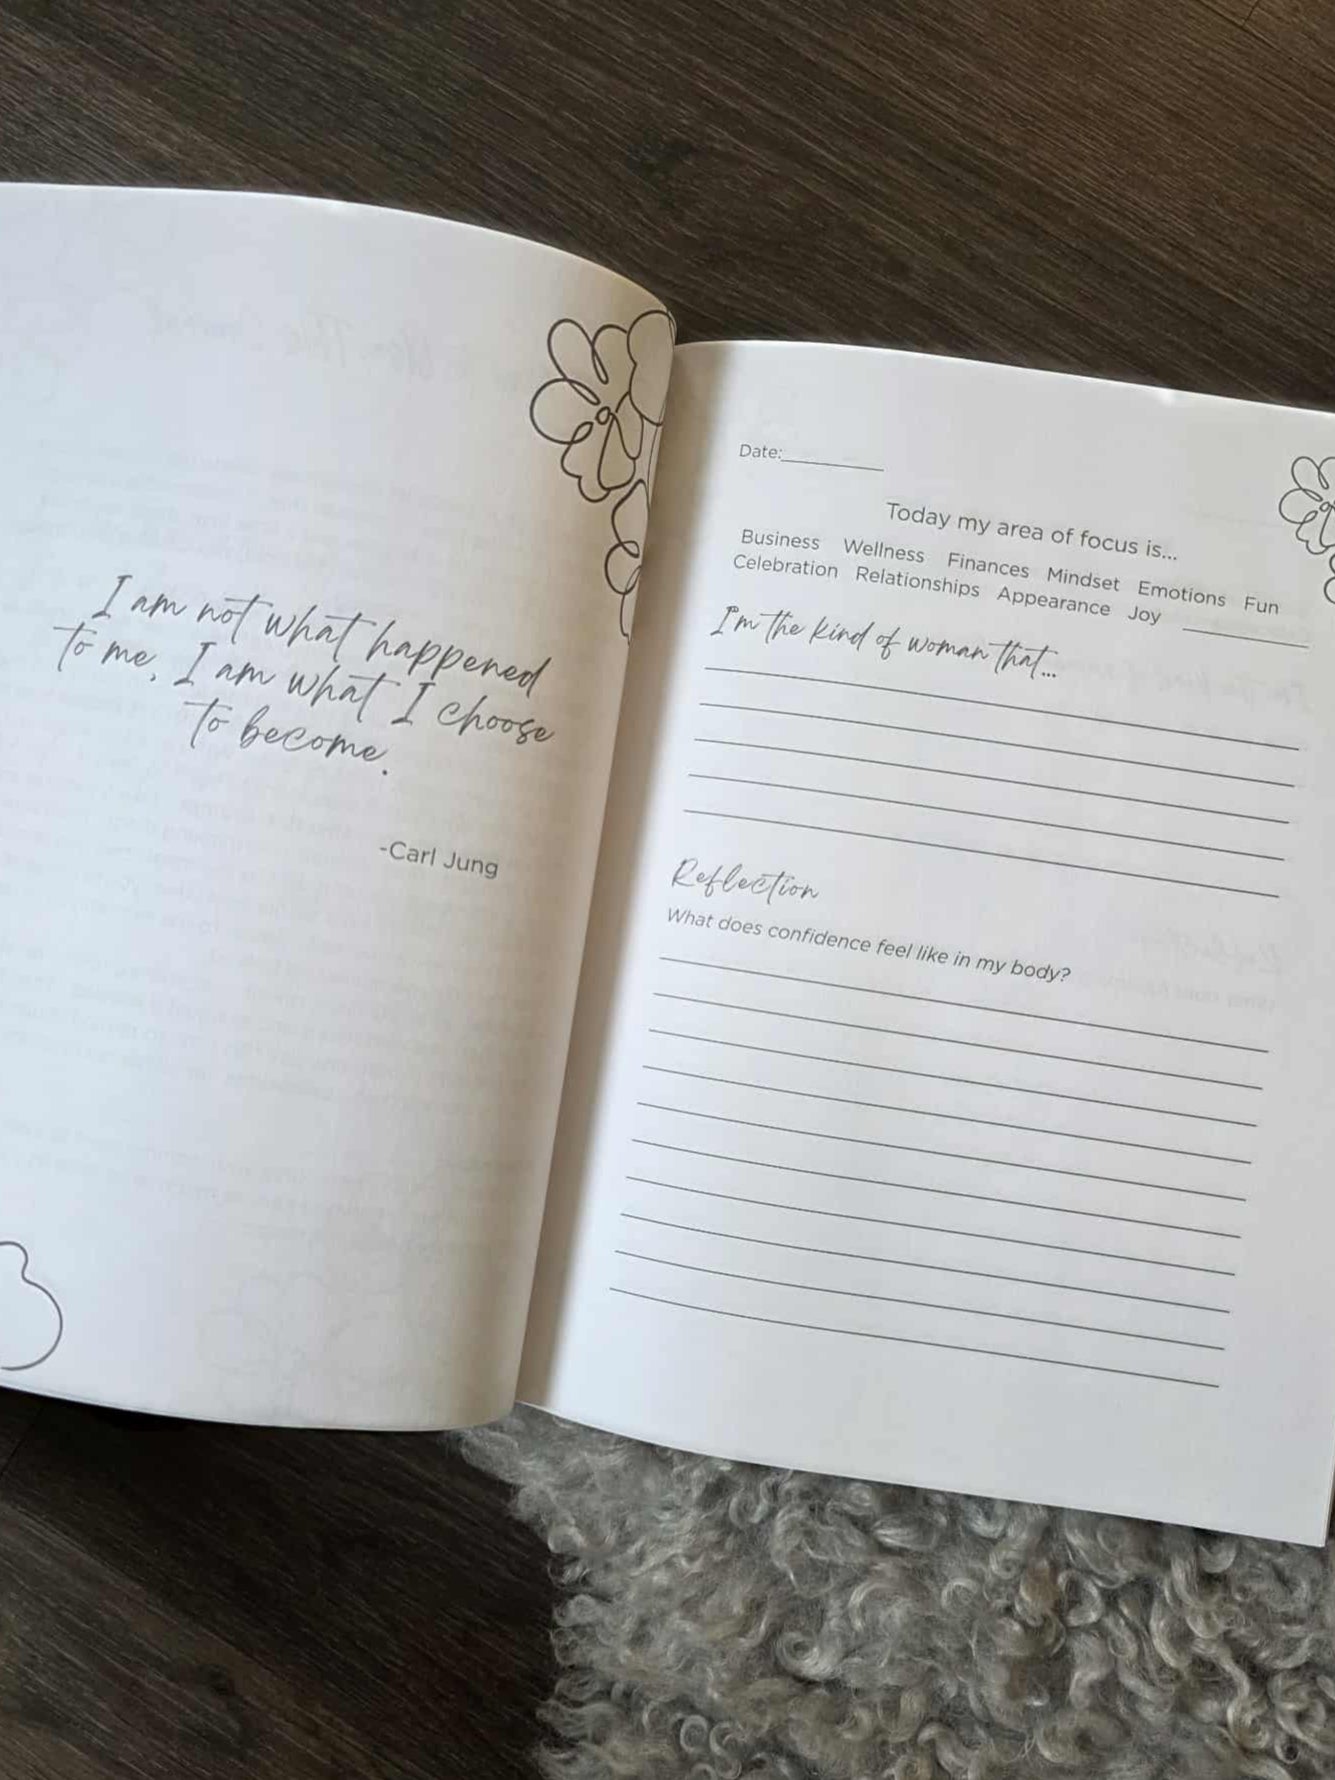 I am not what happened
to me, I am what I choose
to become.
-Carl Jung
Date:
Today my area of focus is...
Business Wellness Finances Mindset Emotions Fun
Celebration Relationships Appearance Joy
I'm the kind of woman that...
Reflection
What does confidence feel like in my body?